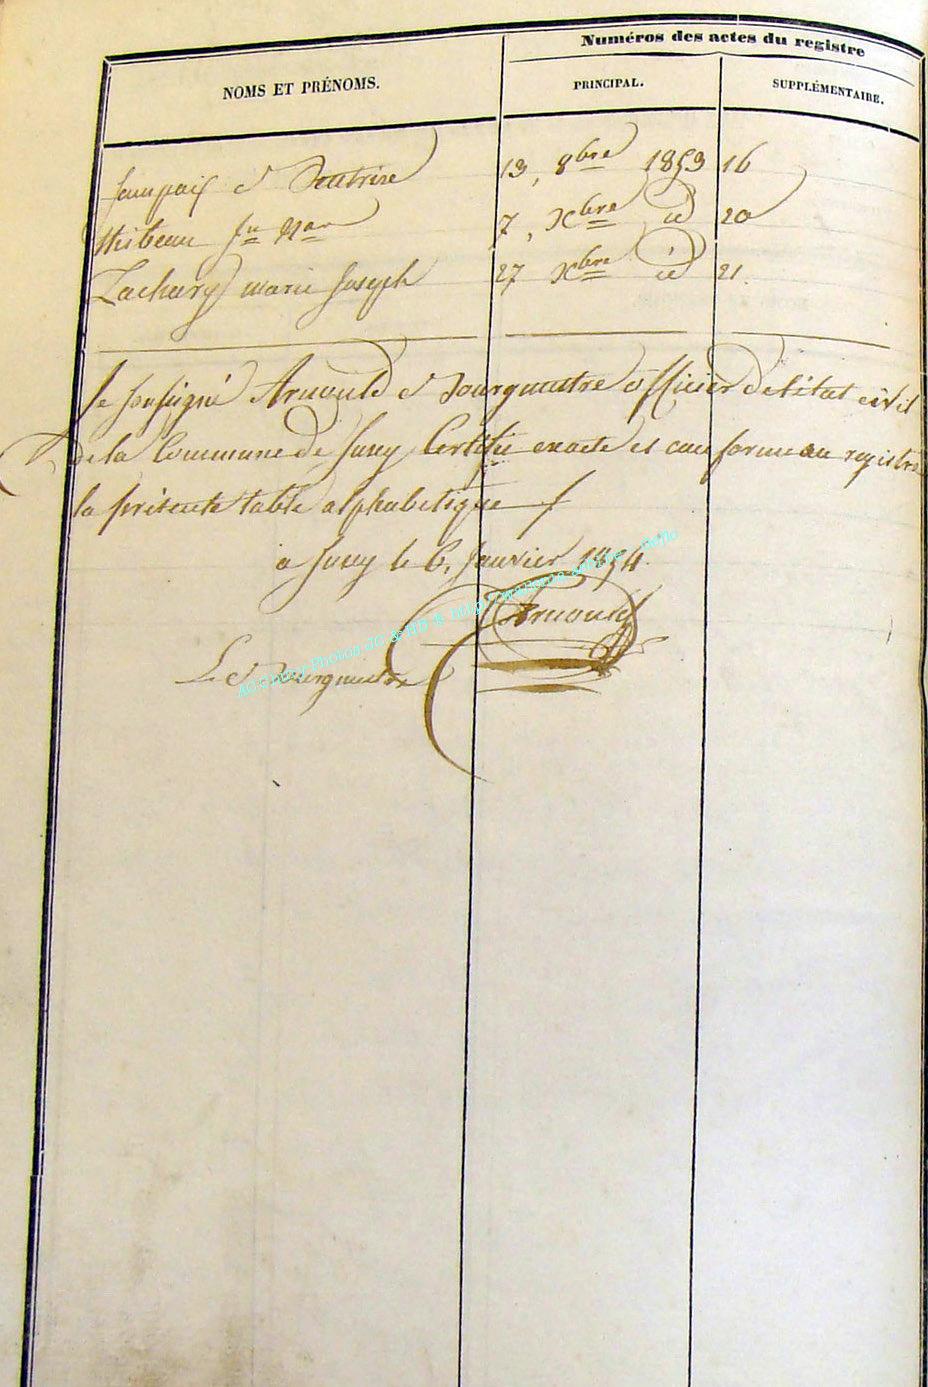 Numéros des actes du registre
NOMS ET PRÉNOMS. PRINCIPAL. SUPPLÉMENTAIRE.
13, 8bre 1853 16
Thibeau Jn 7, Xbre id 20
Zachary marie Joseph 27 Xbre id 21.
le soussigné Arnould Bourgmestre officier de l'état civil
de la Commune de Suny Certifie exacte et conforme au registre
la présente table alphabetique
a Suny le 6, Janvier 1854.
Arnould
Le Bourgmestre